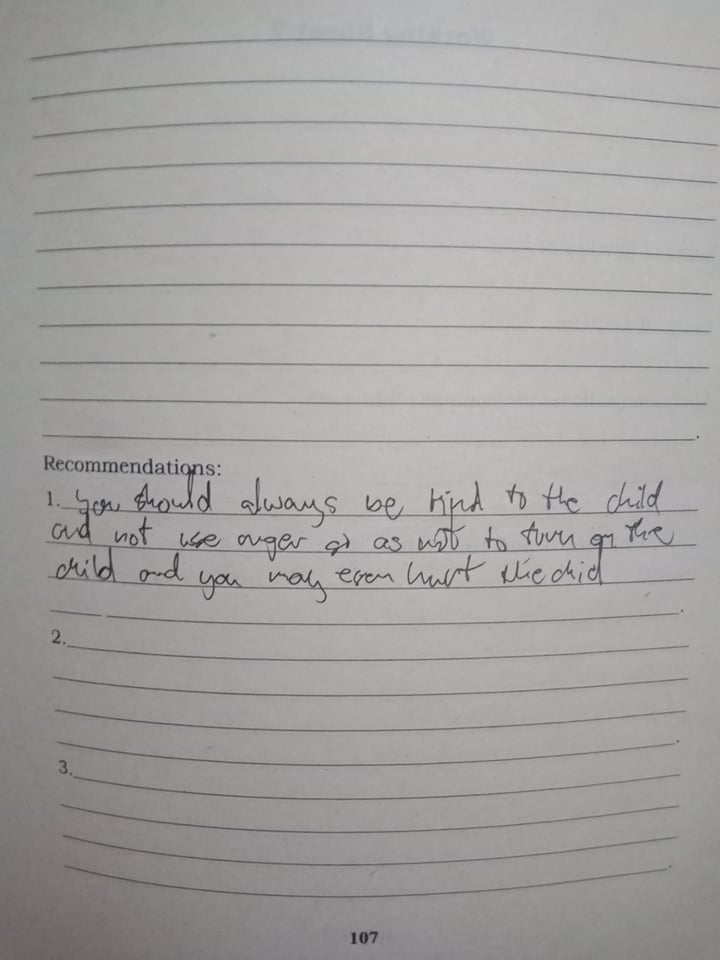 Recommendations:
1. You should always be kind to the child
and not use anger as not to turn on the
child and you may even hurt the chid
2.
3.
107